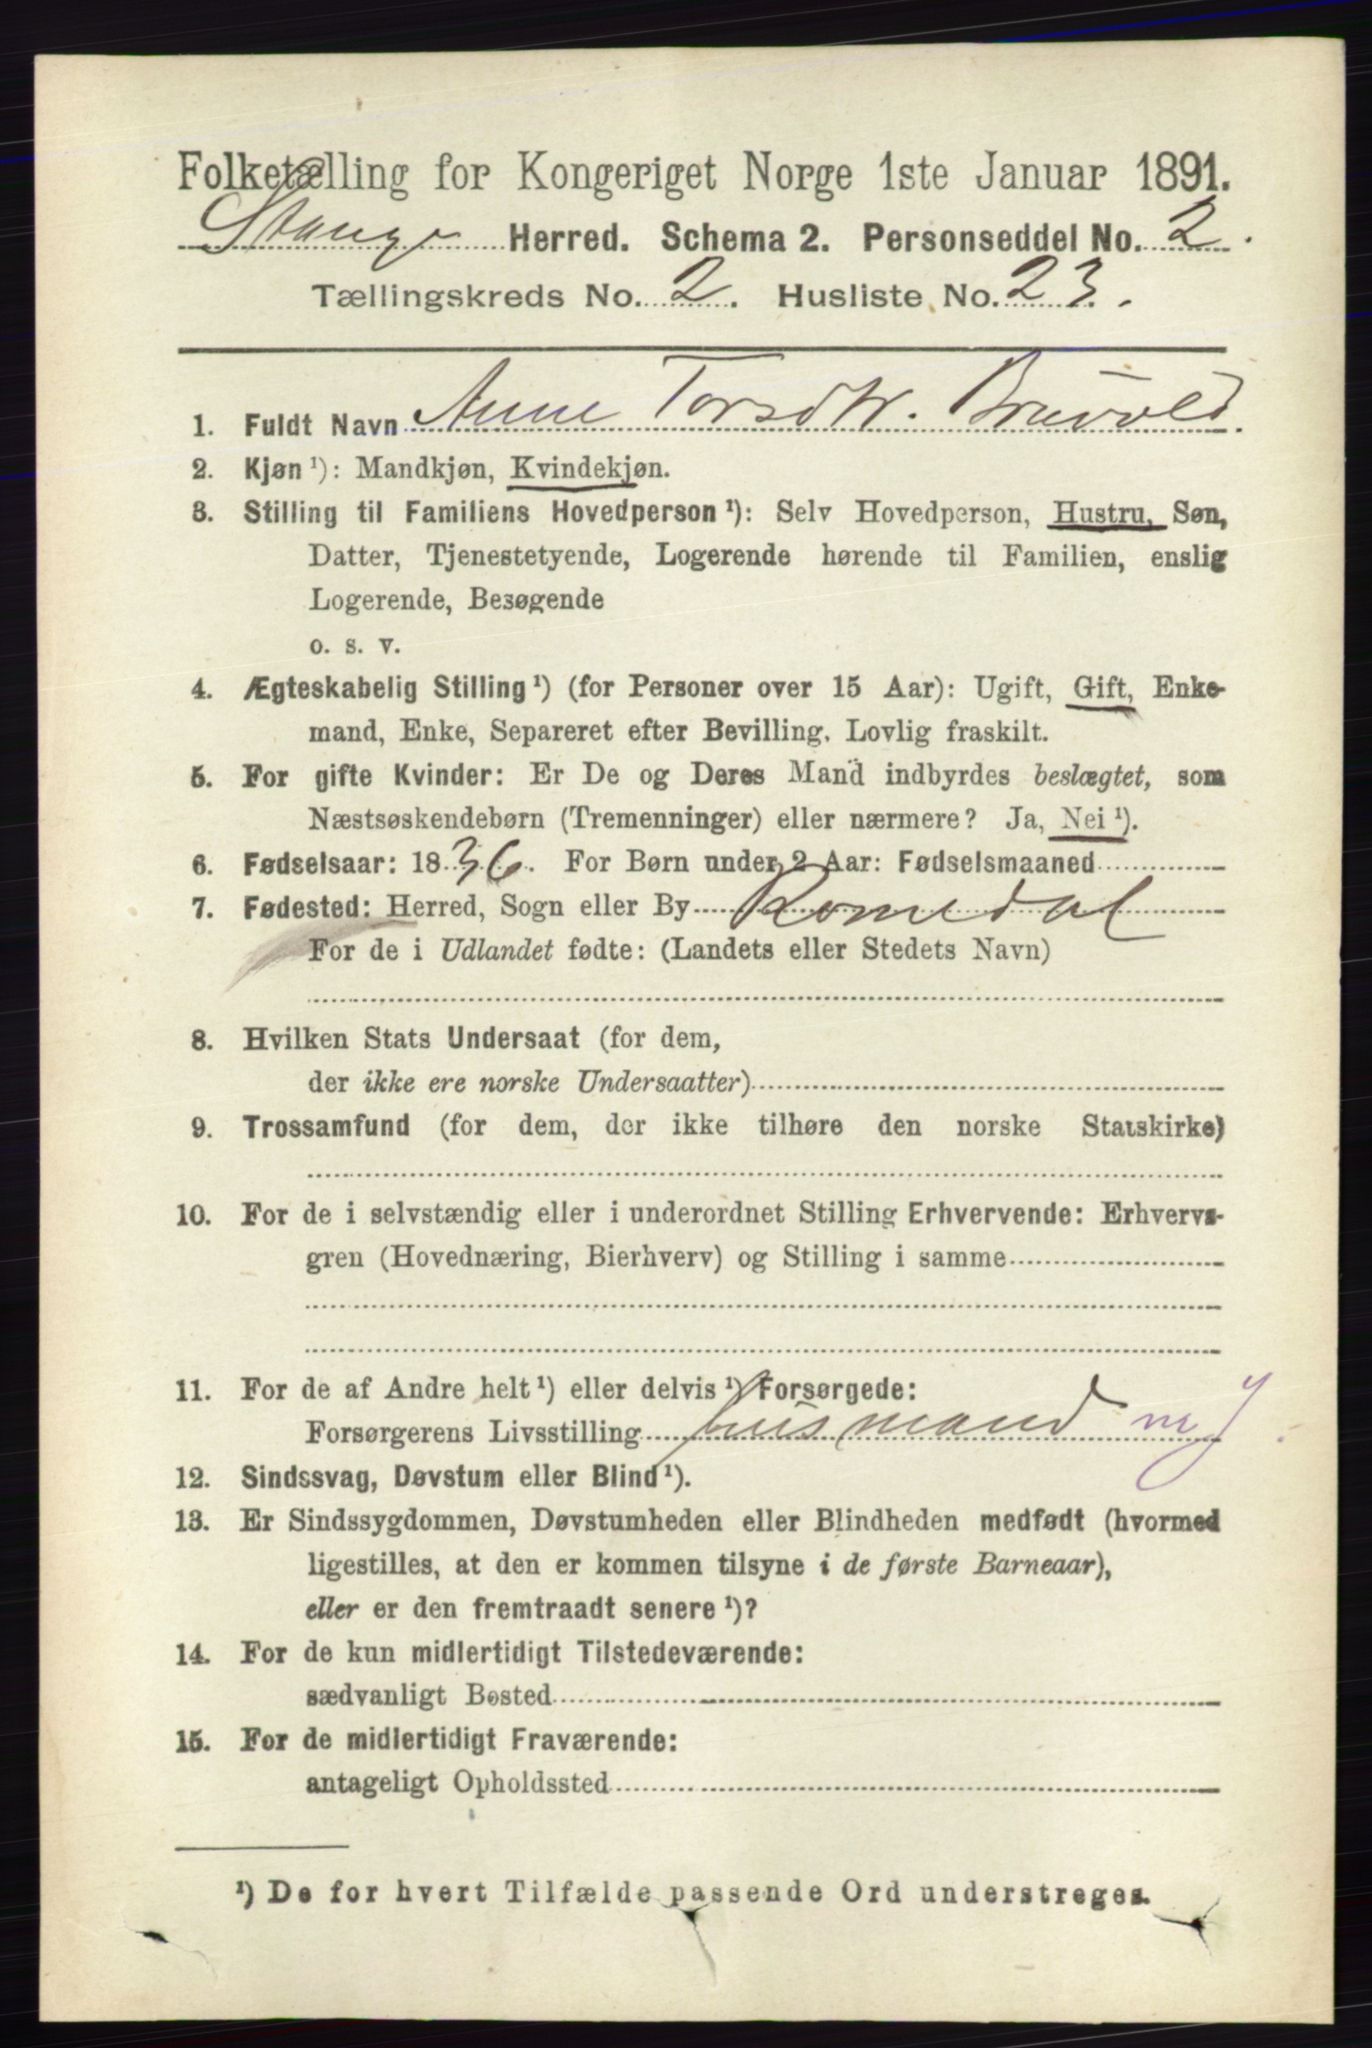 Folketælling for Kongeriget Norge 1ste Januar 1891.
Stange Herred. Schema 2. Personseddel No. 2.
Tællingskreds No. 2. Husliste No. 23.
1. Fuldt Navn Anne Torsdtr.
2. Kjøn ¹): Mandkjøn, Kvindekjøn.
3. Stilling til Familiens Hovedperson ¹): Selv Hovedperson, Hustru, Søn,
Datter, Tjenestetyende, Logerende hørende til Familien, enslig
Logerende, Besøgende
o. s. v.
4. Ægteskabelig Stilling ¹) (for Personer over 15 Aar): Ugift, Gift, Enke-
mand, Enke, Separeret efter Bevilling. Lovlig fraskilt.
5. For gifte Kvinder: Er De og Deres Mand indbyrdes beslægtet, som
Næstsøskendebørn (Tremenninger) eller nærmere? Ja, Nei ¹).
6. Fødselsaar: 1836. For Børn under 2 Aar: Fødselsmaaned
7. Fødested: Herred, Sogn eller By Romedal
For de i Udlandet fødte: (Landets eller Stedets Navn)
8. Hvilken Stats Undersaat (for dem,
der ikke ere norske Undersaatter)
9. Trossamfund (for dem, der ikke tilhøre den norske Statskirke)
10. For de i selvstændig eller i underordnet Stilling Erhvervende: Erhvervs-
gren (Hovednæring, Bierhverv) og Stilling i samme
11. For de af Andre helt ¹) eller delvis ¹) Forsørgede:
Forsørgerens Livsstilling husmand m J
12. Sindssvag, Døvstum eller Blind ¹).
13. Er Sindssygdommen, Døvstumheden eller Blindheden medfødt (hvormed
ligestilles, at den er kommen tilsyne i de første Barneaar),
eller er den fremtraadt senere ¹)?
14. For de kun midlertidigt Tilstedeværende:
sædvanligt Bosted
15. For de midlertidigt Fraværende:
antageligt Opholdssted
¹) De for hvert Tilfælde passende Ord understreges.